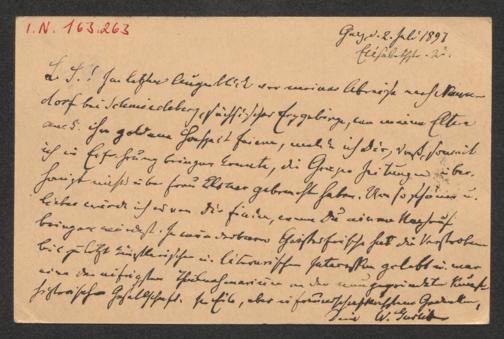 I.N. 163.263
Graz, d. 2. Juli 1897
Elisabethstr.
L. F.! Im letzten Augenblick vor meiner Abreise nach Naun-
dorf bei Schmiedeberg, sächsisches Erzgebirge, wo meine Eltern
ihre goldene Hochzeit feiern, melde ich Dir, daß, soweit
ich in Erfahrung bringen konnte, die Grazer Zeitungen über-
haupt nichts über Frau gebracht haben. Um so schöner u.
lieber würde ich es von Dir finden, wenn Du einen Nachruf
bringen würdest. In wunderbarer Geistesfrische hat die Verstorbene
bis zuletzt künstlerischen u. literarischen Interessen gelebt u. war
eine der eifrigsten Theilnehmerinnen an der neugegründeten Kunst-
historischen Gesellschaft. In Eile, aber in freundschaftlichstem Gedenken,
Dein W. Gurlitt